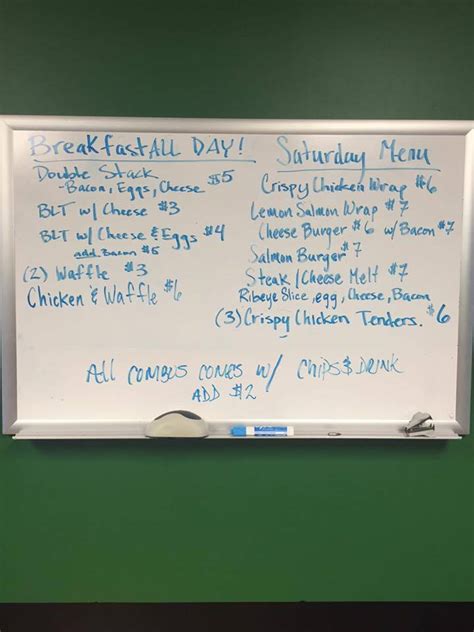 Breakfast ALL DAY!
Double Stack $5
-Bacon, Eggs, Cheese
BLT w/ Cheese $3
BLT w/ Cheese & Eggs $4
add Bacon $5
(2) Waffle $3
Chicken & Waffle $6
Saturday Menu
Crispy Chicken Wrap $6
Lemon Salmon Wrap $7
Cheese Burger $6 w/ Bacon $7
Salmon Burger $7
Steak/Cheese Melt $7
Ribeye Slice, egg, Cheese, Bacon
(3) Crispy Chicken Tenders. $6
All COMBOS COMES w/ CHIPS & DRINK
ADD $2